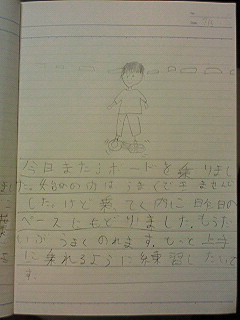 今日またミボードを乗りまし
た。始めの内はうまくできません
した。けど乗ってく内に昨日の
ペースにもどりました。もうだ
いぶうまくのれます。もっと上手
に乗れるように練習したいで
す。